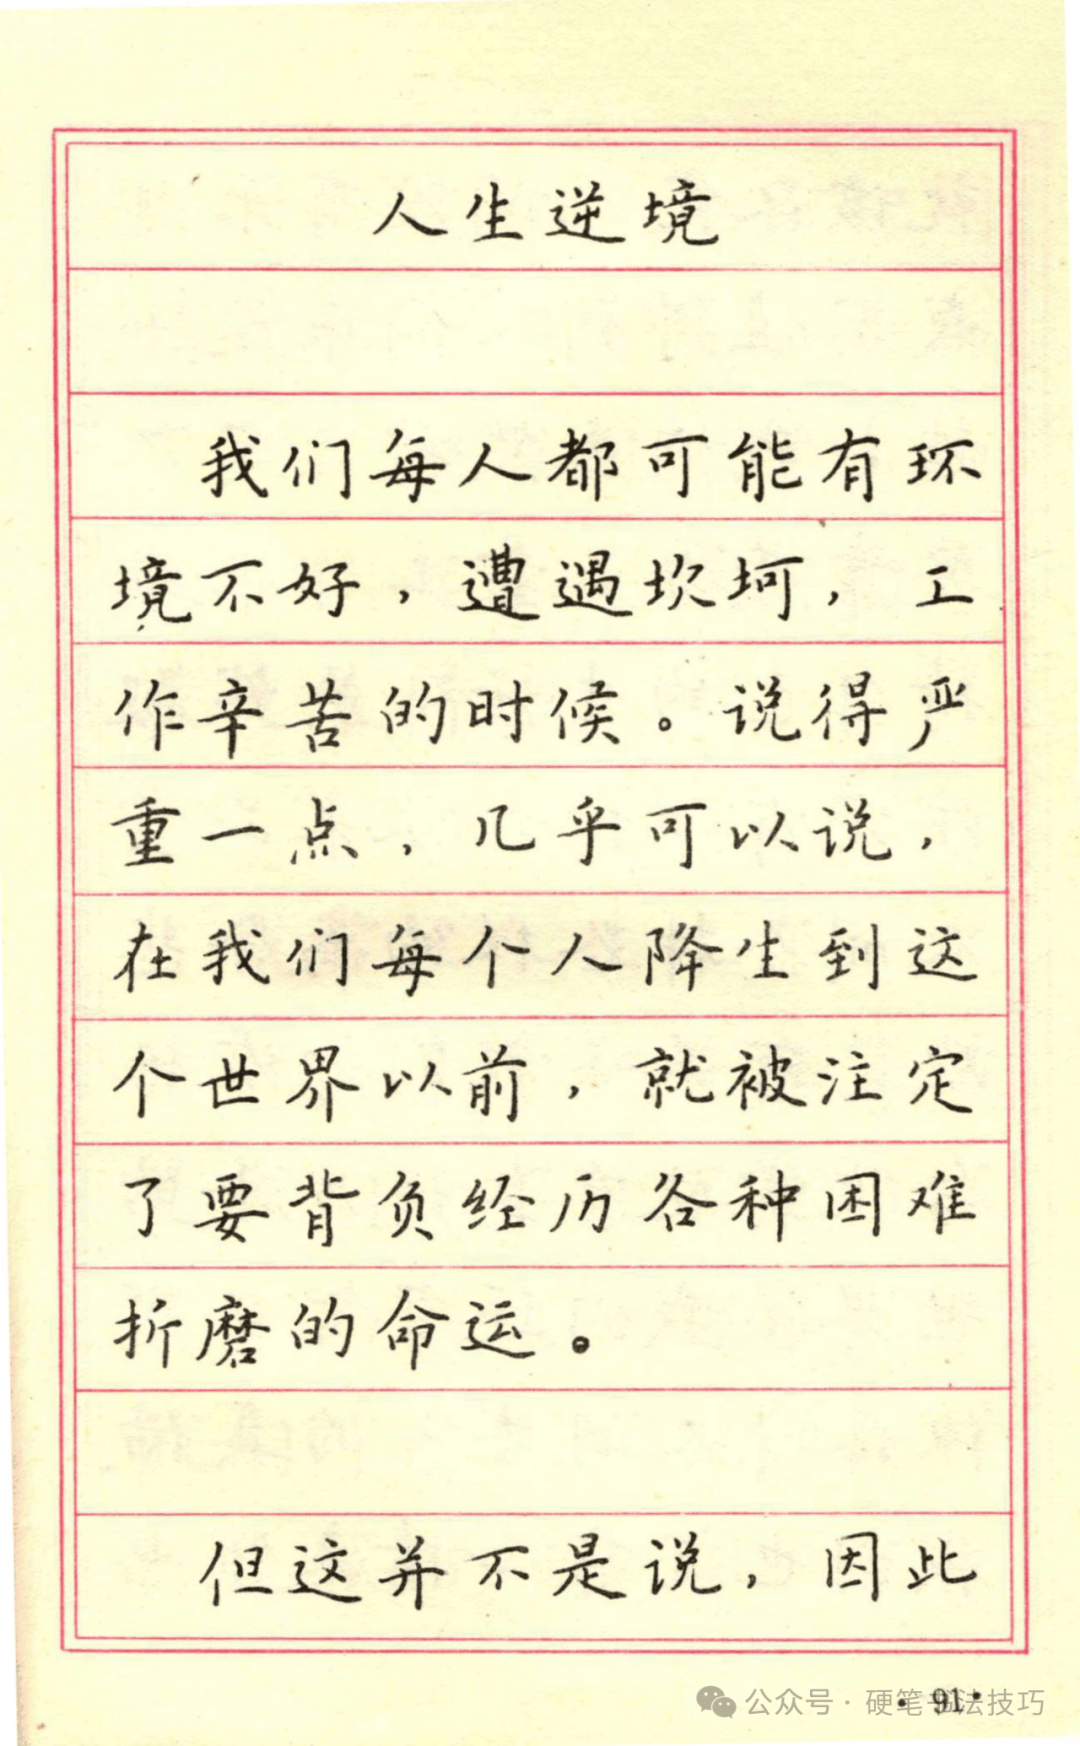 人生逆境
我们每人都可能有环
境不好，遭遇坎坷，工
作辛苦的时候。说得严
重一点，几乎可以说，
在我们每个人降生到这
个世界以前，就被注定
了要背负经历各种困难
折磨的命运。
但这并不是说，因此
公众号·硬笔书法技巧
·91·